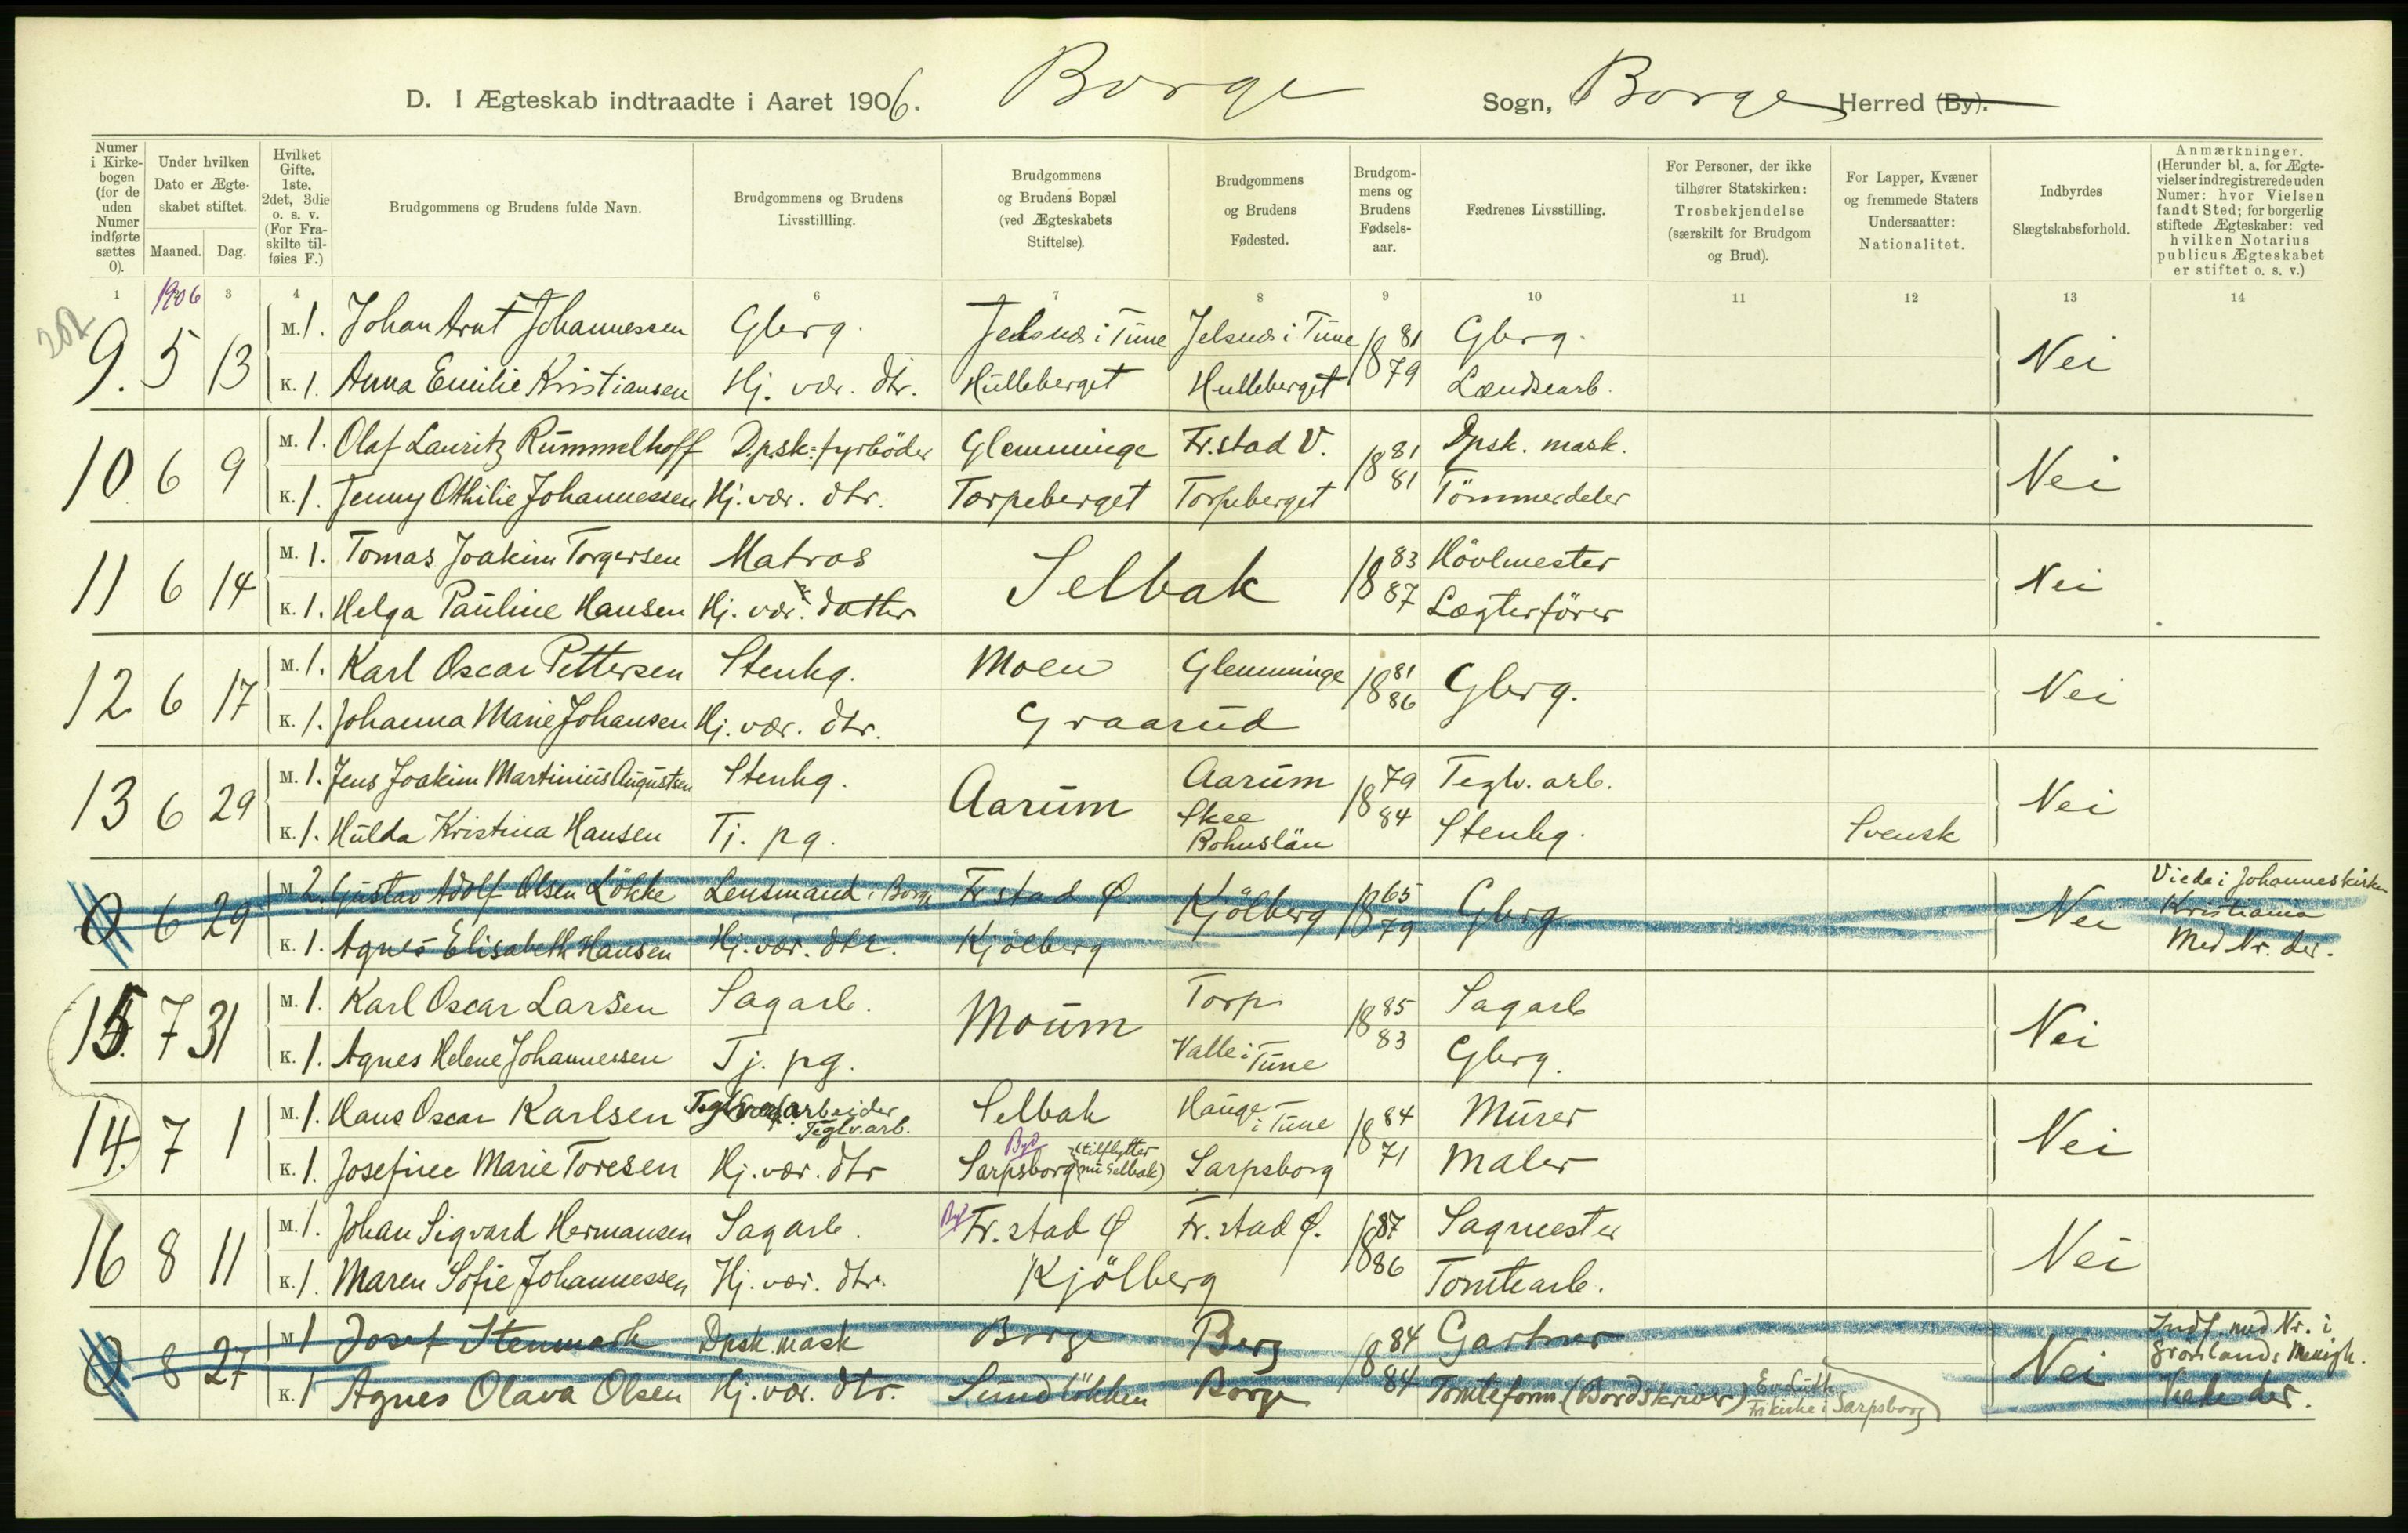 D. I Ægteskab indtraadte i Aaret 1906. Borge Sogn, Borge Herred (By).
Numer i Kirkebogen (for de uden Numer indførte sættes 0). Under hvilken Dato er Ægteskabet stiftet. Maaned. Dag. Hvilket Gifte. 1ste, 2det, 3die o. s. v. (For Fraskilte tilføies F.) Brudgommens og Brudens fulde Navn. Brudgommens og Brudens Livsstillling. Brudgommens og Brudens Bopæl (ved Ægteskabets Stiftelse). Brudgommens og Brudens Fødested. Brudgommens og Brudens Fødselsaar. Fædrenes Livsstilling. For Personer, der ikke tilhører Statskirken: Trosbekjendelse (særskilt for Brudgom og Brud). For Lapper, Kvæner og fremmede Staters Undersaatter: Nationalitet. Indbyrdes Slægtskabsforhold. Anmærkninger. (Herunder bl. a. for Ægtevielser indregistrerede uden Numer: hvor Vielsen fandt Sted; for borgerlig stiftede Ægteskaber: ved hvilken Notarius publicus Ægteskabet er stiftet o. s. v.)
1 1906 3 4 6 7 8 9 10 11 12 13 14
202
9. 5 13 M. 1. Johan Arnt Johannessen Gbrg. Jelsnæs i Tune Jelsnæs i Tune 1881 Gbrg. Nei
K. 1. Anna Emilie Kristiansen Hj. vær. dtr. Hulleberget Hulleberget 79 Lændsearb.
10 6 9 M. 1. Olaf Lauritz Rummelhoff D.psk. fyrböder Glemminge Fr.stad V. 1881 Dpsk. mask. Nei
K. 1. Jenny Othilie Johannessen Hj. vær. dtr. Torpeberget Torpeberget 81 Tömmerdeler
11 6 14 M. 1. Tomas Joakim Torgersen Matros Selbak 1883 Hövlmester Nei
K. 1. Helga Pauline Hansen Hj. vær. datter 87 Lægterförer
12 6 17 M. 1. Karl Oscar Pettersen Stenhg. Moen Glemminge 1881 Gbrg. Nei
K. 1. Johanna Marie Johansen Hj. vær. dtr. Graarud 86
13 6 29 M. 1. Jens Joakim Martinius Augustsen Stenhg. Aarum Aarum 1879 Teglv. arb. Nei
K. 1. Hulda Kristina Hansen Tj. pg. Skee Bohuslän 84 Stenhg. Svensk
0 6 29 M. 2. Gustav Adolf Olsen Lökke Lensmand i Borge Fr.stad Ø Kjölberg 1865 Gbrg Nei Viede i Johanneskirken Kristiania
K. 1. Agnes Elisabeth Hansen Hj. vær. dtr. Kjölberg 79 Med Nr. der.
15. 7 31 M. 1. Karl Oscar Larsen Sagarb. Moum Torp 1885 Sagarb Nei
K. 1. Agnes Helene Johannessen Tj. pg. Valle i Tune 83 Gbrg.
14. 7 1 M. 1. Hans Oscar Karlsen Teglv.arb. Selbak Hauge i Tune 1884 Murer Nei
K. 1. Josefine Marie Toresen Hj. vær. dtr By Sarpsborg (tilflytter nu Selbak) Sarpsborg 71 Maler
16 8 11 M. 1. Johan Sigvard Hermansen Sagarb. By Fr. stad Ø Fr. stad Ø. 1887 Sagmester Nei
K. 1. Maren Sofie Johannessen Hj. vær. dtr. Kjölberg 86 Tomtearb.
0 8 27 M. 1 Josef Stenmark Dpsk. mask Borge Berg 1884 Gartner Nei Indf. med Nr. i Grønlands Menigh.
K. 1 Agnes Olava Olsen Hj. vær. dtr. Sundlökken Borge 84 Tomteform. (Bordskriver) Ev. Luth. Frikirke i Sarpsborg Viede der.